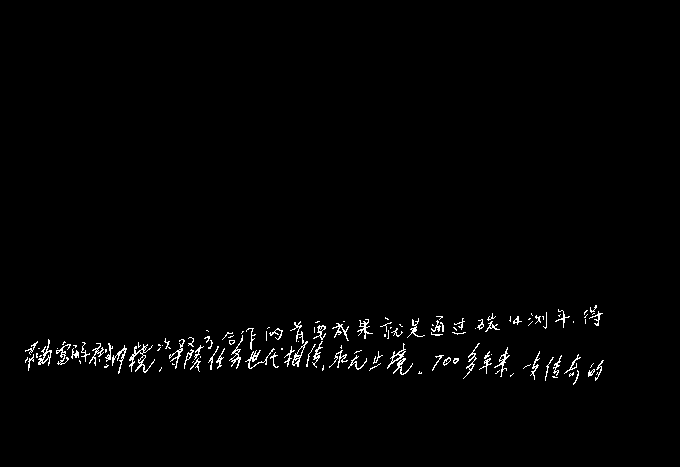 次双方合作的首要成果就是通过碳14测年,得
守陵任务世代相传,永无止境。700多年来,专传奇的